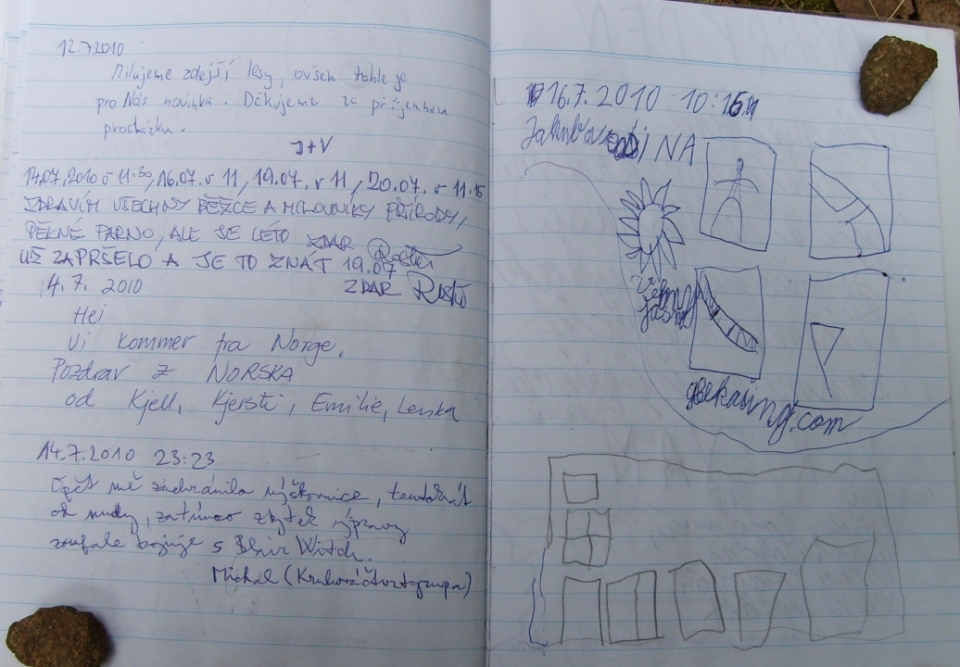 12.7.2010
Milujeme zdejší lesy, ovšem tohle je
pro Nás novinka. Děkujeme za příjemnou
procházku.
J+V
14.07.2010 v 11:30, 16.07. v 11, 19.07. v 11, 20.07. v 11.15
ZDRAVÍM VŠECHNY BĚŽCE A MILOVNÍKY PŘÍRODY,
PĚKNÉ PARNO, ALE JE LÉTO ZDAR
UŽ ZAPRŠELO A JE TO ZNÁT 19.07
ZDAR
14.7. 2010
Hei
Vi kommer fra Norge.
Pozdrav z NORSKA
od Kjell, Kjersti, Emilie, Lenka
14.7.2010 23:23
Opět mě zachránila výškovnice, tentokrát
od nudy, zatímco zbytek výpravy
zoufale bojuje s Blair Witch.
Michal
16.7. 2010 10:15
geekasing.com